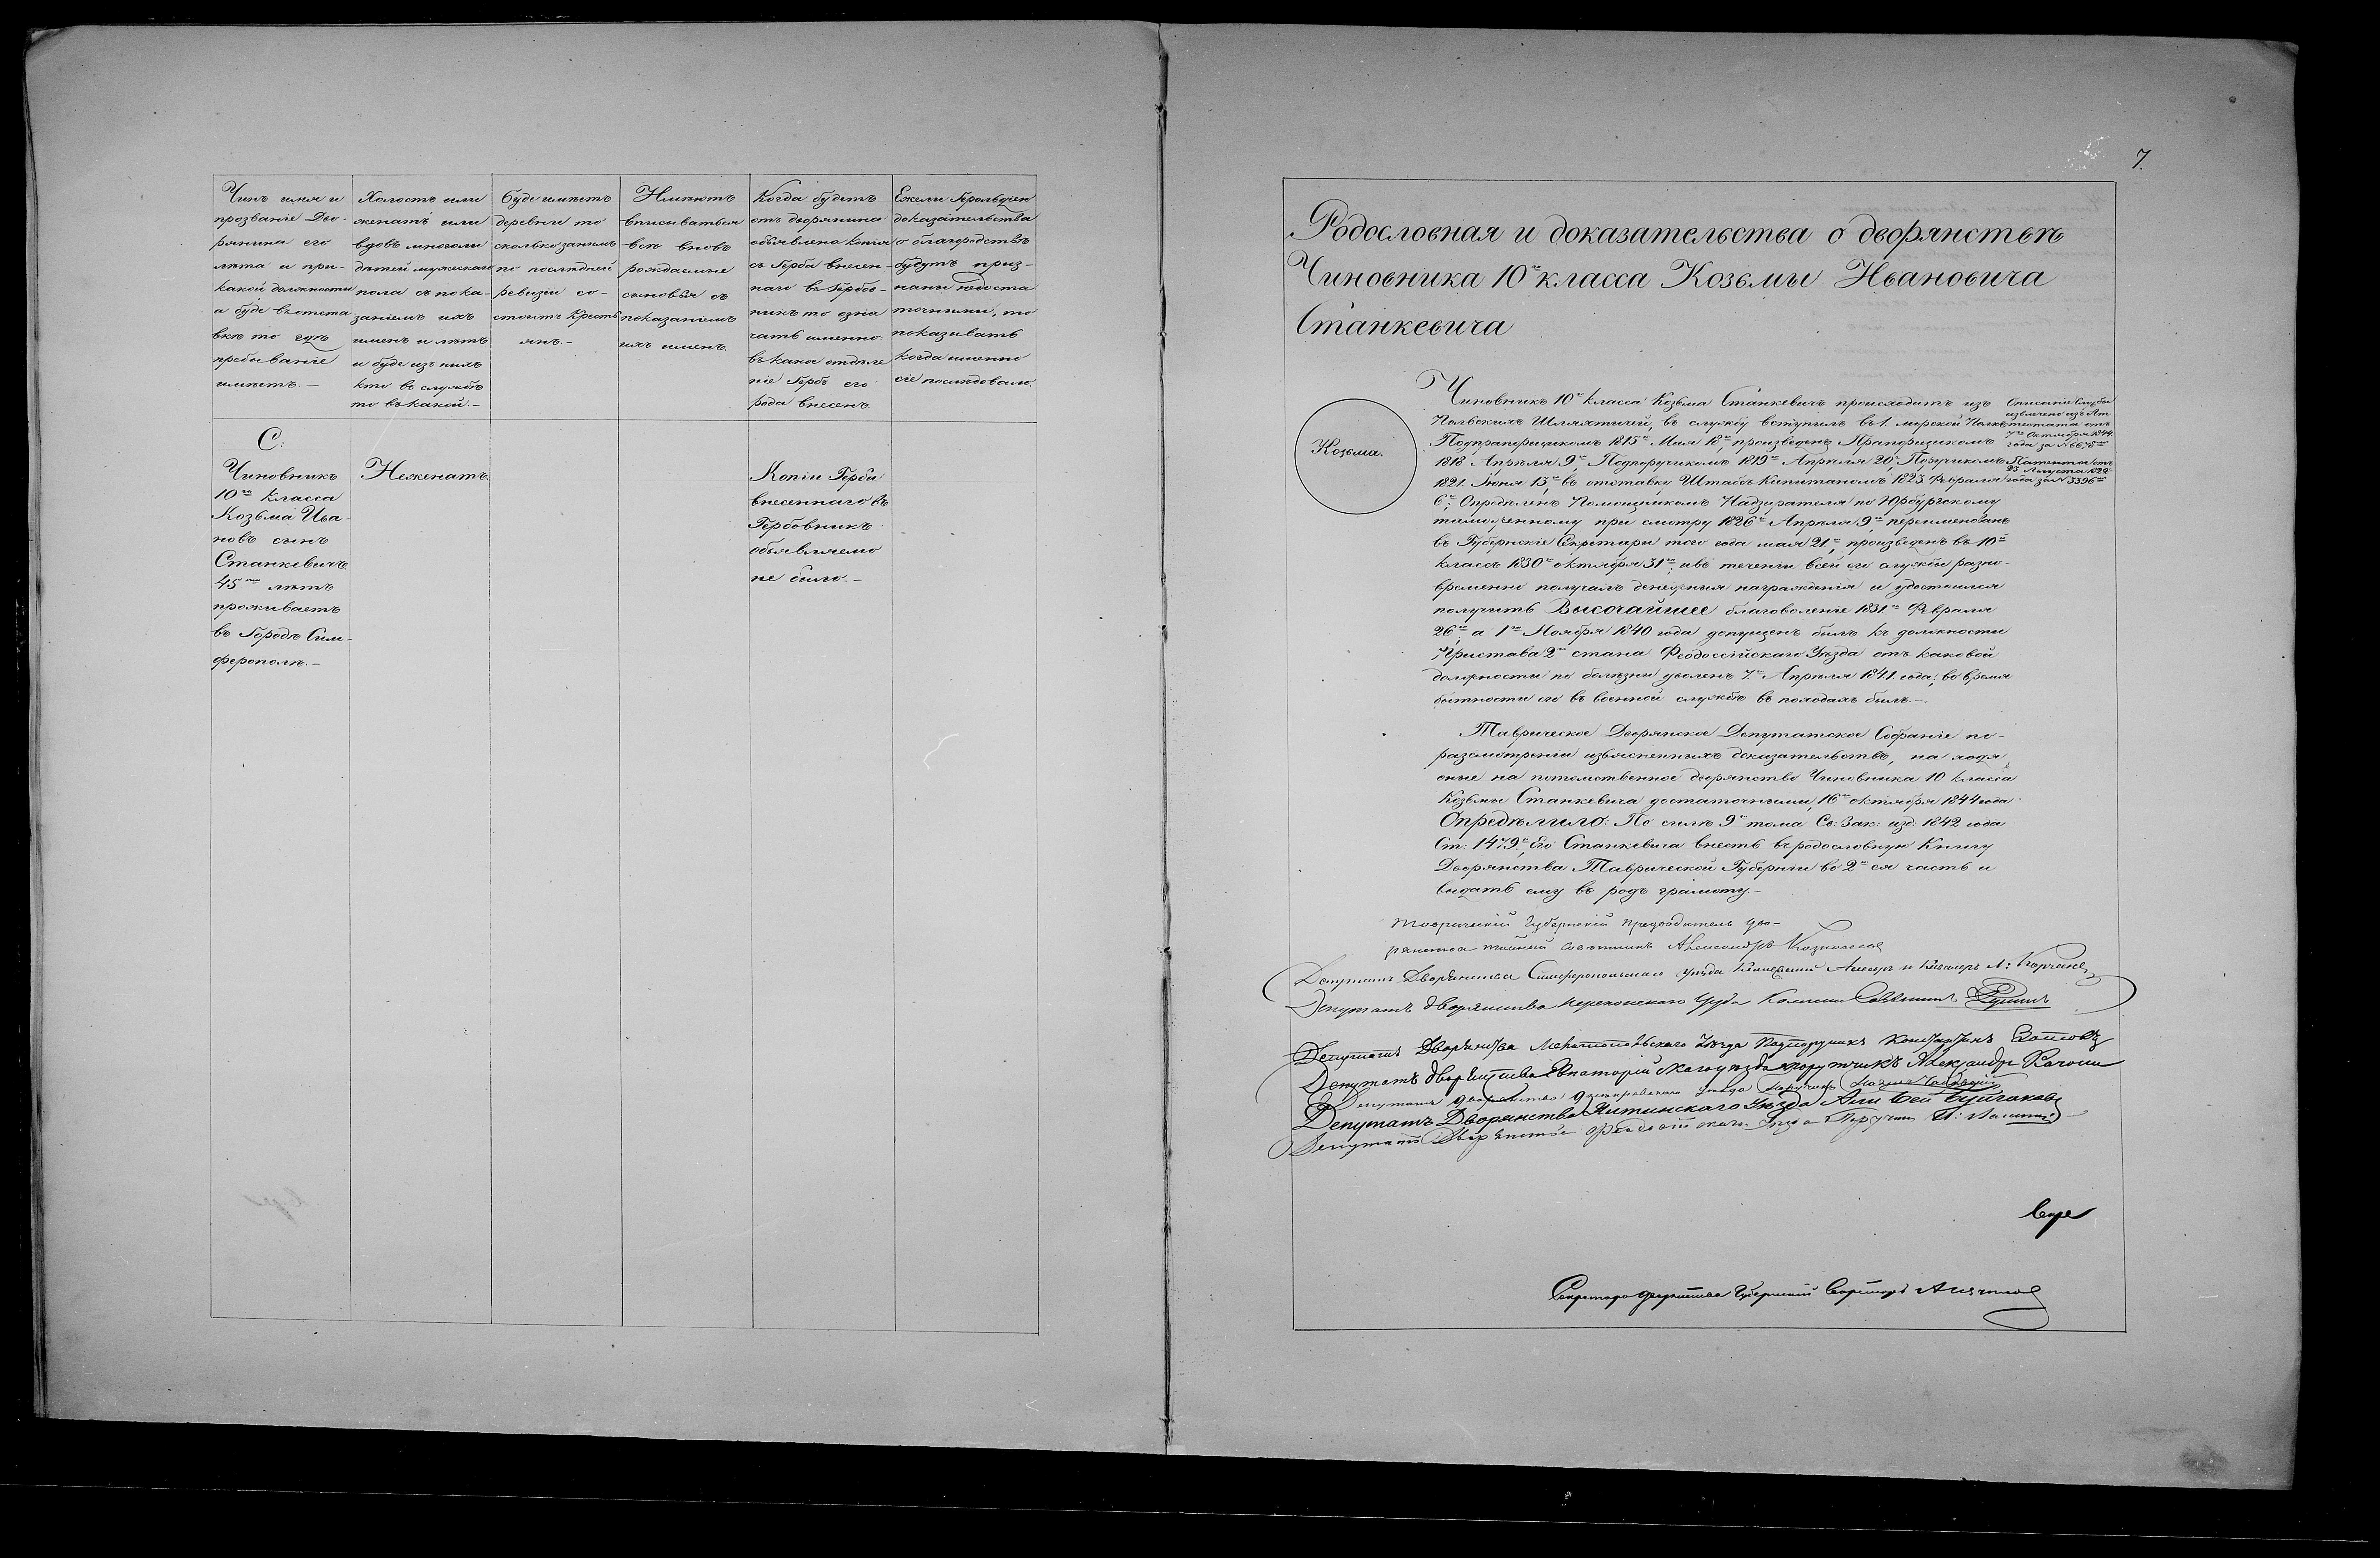 Чинъ имя и
прозваніе Дво-
рянина его
лѣта и при
какой должности
а буде въ отста
вкѣ то гдѣ
пребываніе
имѣетъ.—
Холостъ или
женатъ или
вдовъ многоли
дѣтей мужескаго
пола съ пока-
заніемъ ихъ
именъ и лѣтъ
и буде изъ нихъ
кто въ службѣ
то въ какой.—
Буде имѣетъ
деревни то
сколько за нимъ
по послѣдней
ревизіи со-
стоитъ крестъ
янъ.—
Имѣютъ
вписываться
всѣ вновь
рождаемые
сыновья съ
показаніемъ
ихъ именъ.
Когда будетъ
отъ дворянина
объявлена копія
съ Герба внесен-
наго въ Гербов-
никъ то озна
чать именно
въ какое отдѣле
ніе Гербъ его
рода внесенъ.
Ежели Герольдіею
доказательства
о благородствѣ
будутъ приз-
наны недоста
точными, то
показывать
когда именно
сіе послѣдовало.
С:
Чиновникъ
10го класса
Козьма Ива-
новъ сынъ
Станкевичъ
45ти лѣтъ
проживаетъ
въ Городѣ Сим-
ферополѣ.—
Неженатъ.
Копіи Герба
внесеннаго въ
Гербовникъ
объявляемо
не было.—
7.
Родословная и доказательства о дворянствѣ
Чиновника 10го класса Козьмы Ивановича
Станкевича
Козьма.
Чиновникъ 10го класса Козьма Станкевичъ происходитъ изъ
Польскихъ Шляхтичей, въ службу вступилъ въ 1. морской Полкъ
Подпрапорщикомъ 1815го Мая 18го, произведенъ Прапорщикомъ
1818 Апрѣля 9го, Подпоручикомъ 1819го Апрѣля 20го, Поручикомъ
1821. Іюня 13го, въ отставку Штабсъ Капитаномъ 1823 Февраля
6го, Опредѣленъ Помощникомъ Надзирателя по Юрбургскому
таможенному при смотру 1826го Апрѣля 9го, переименованъ
въ Губернскіе Секретари того года мая 21го, произведенъ въ 10й
классъ 1830го октября 31го, и въ теченіи всей его службы разно-
временно получалъ денежныя награжденія и удостоился
получить Высочайшее благоволеніе 1831го Февраля
26го, а 1го Ноября 1840 года допущенъ былъ къ должности
Пристава 2го стана Феодосійскаго Уѣзда отъ каковой
должности по болѣзни уволенъ 7го Апрѣля 1841. года; во время
бытности его въ военной службѣ въ походахъ былъ.—
Описаніе Службы
извлечено изъ Ат
тестата отъ
7го Октября 1844
года за № 6678мъ
Патента отъ
23 Августа 1829
года за № 3396мъ
Таврическое Дворянское Депутатское Собраніе по-
разсмотреніи изъясненныхъ доказательствъ, на ходя
оные на потомственное дворянство Чиновника 10 класса
Козьмы Станкевича достаточными, 16го октября 1844 года
Опредѣлило: По силѣ 9го тома Св: Зак: изд: 1842 года
Ст: 1479й, Его Станкевича внесть въ родословную Книгу
Дворянства Таврической Губерніи во 2ю ея часть и
выдать ему въ родъ грамоту.—
Таврическій Губернскій Предводитель дво-
рянства тайный Совѣтникъ Александръ Казначеевъ
Депутатъ Дворянства Симферопольскаго уѣзда
Депутатъ дворянства Перекопскаго Уѣзда
Депутатъ Дворянства Мелитопольскаго Уѣзда Подпоручикъ Константинъ
Депутатъ дворянства Евпаторійскаго уѣзда поручикъ Александръ
Депутатъ дворянства Днѣпровскаго уѣзда поручикъ
Депутатъ Дворянства Ялтинскаго Уѣзда Али Бей Булгаковъ
Депутатъ Дворянства Феодосійскаго Уѣзда Поручикъ
Секретарь дворянства Губернскій Секретарь